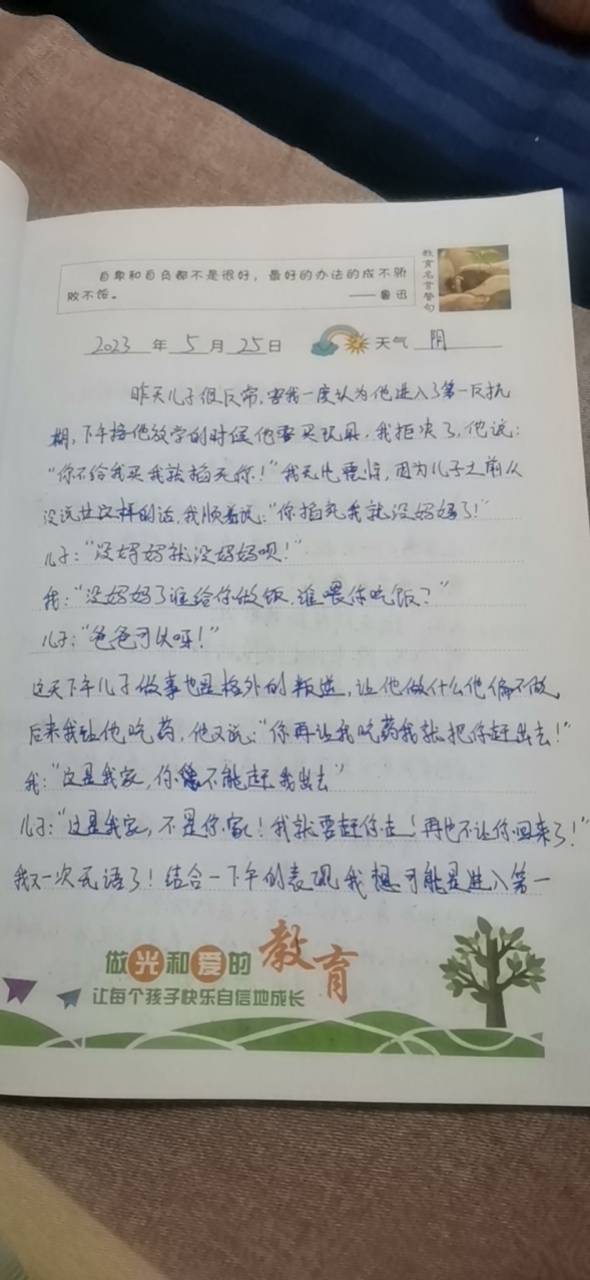 自卑和自负都不是很好，最好的办法的成不骄
败不馁。
——鲁迅
教育名言警句
2023 年 5 月 25 日 天气 阴
昨天儿子很反常，害我一度认为他进入了第一反抗
期，下午接他放学的时候他要买玩具，我拒决了，他说：
"你不给我买我就掐死你！"我无比震惊，因为儿子之前从
没说过这样的话，我顺着说："你掐死我就没妈妈了！"
儿子："没妈妈就没妈妈呗！"
我："没妈妈了谁给你做饭，谁喂你吃饭？"
儿子："爸爸可以呀！"
这天下午儿子做事也是格外的叛逆，让他做什么他偏不做，
后来我让他吃药，他又说："你再让我吃药我就把你赶出去！"
我："这是我家，你不能赶我出去"
儿子："这是我家，不是你家！我就要赶你走！再也不让你回来了！"
我又一次无语了！结合一下午的表现我想可能是进入第一
做光和爱的教育
让每个孩子快乐自信地成长